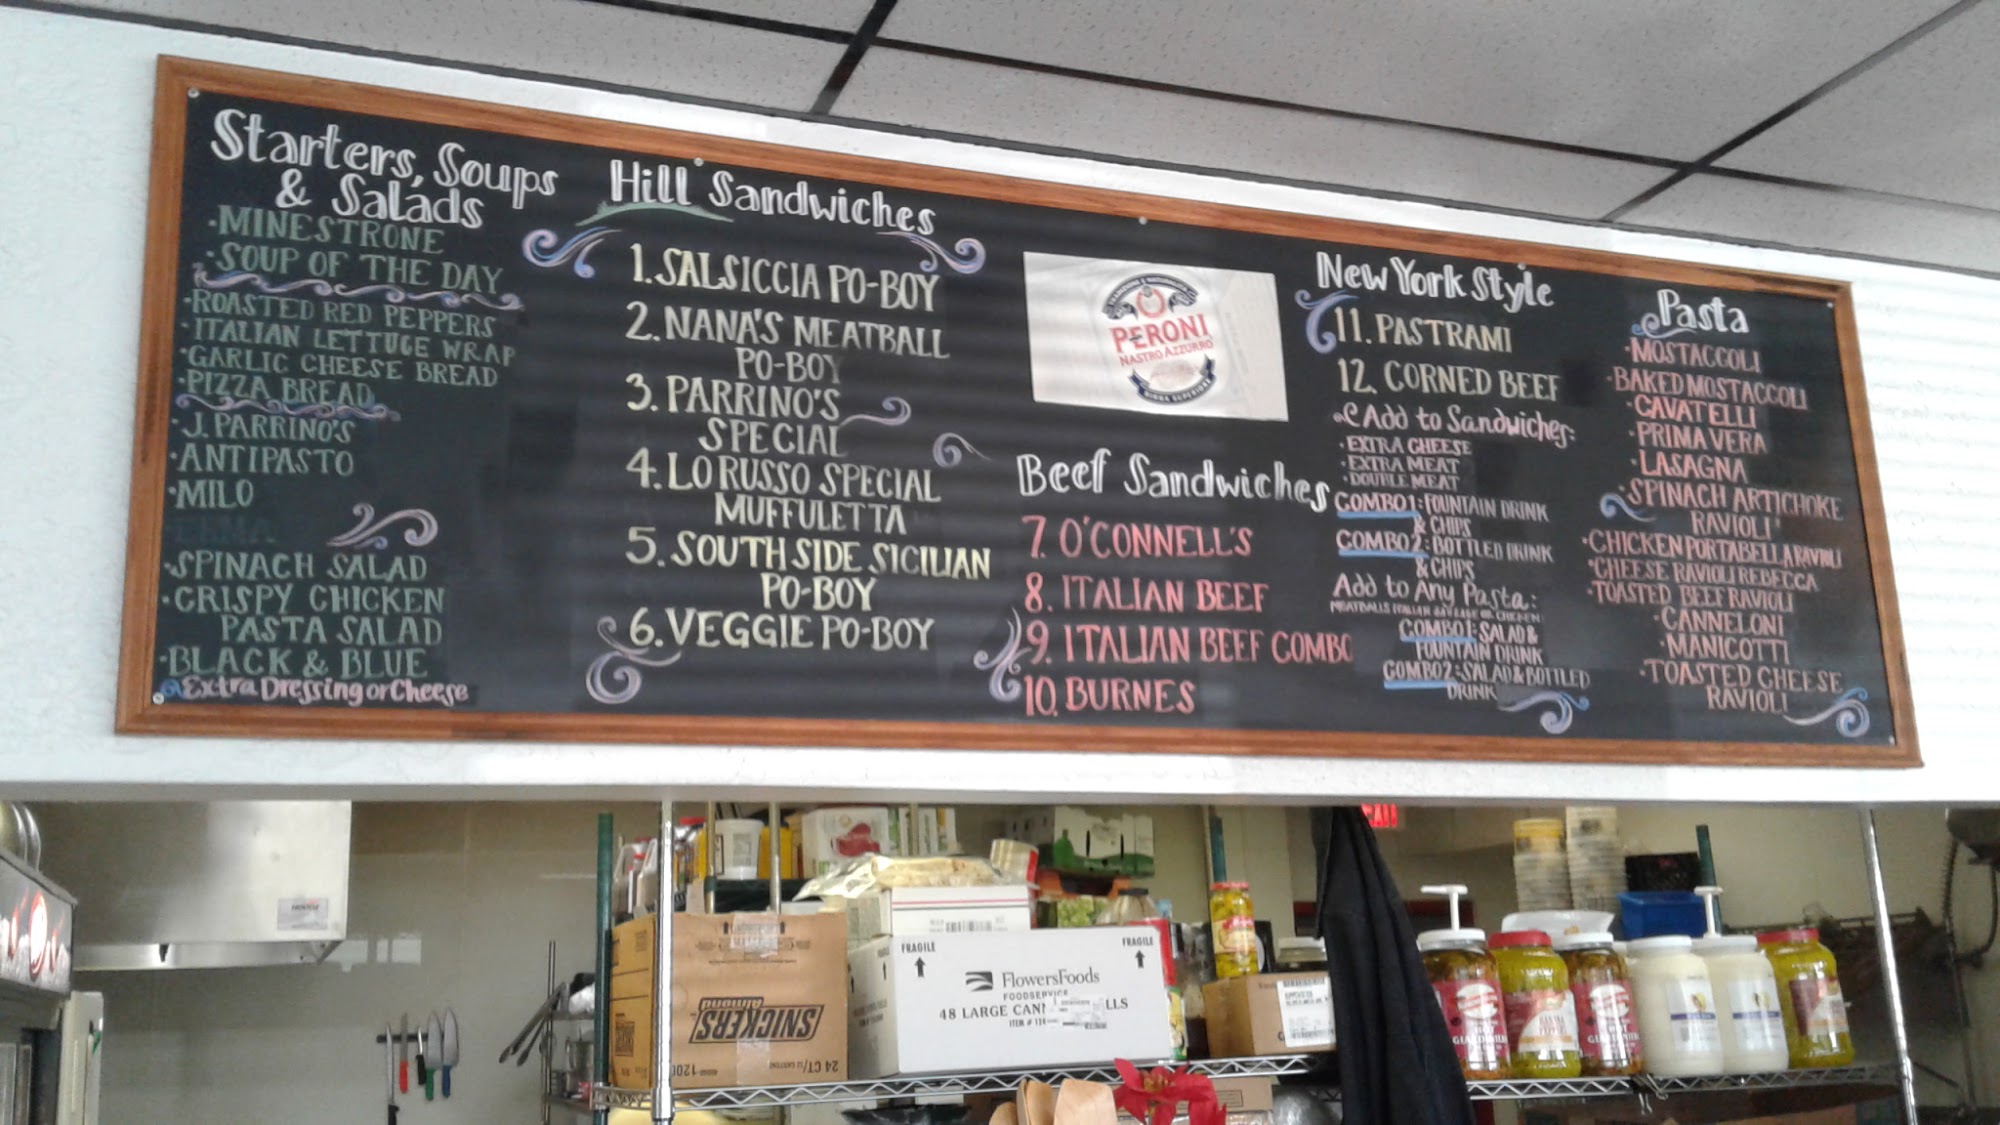 Starters, Soups
& Salads
·MINESTRONE
·SOUP OF THE DAY
·ROASTED RED PEPPERS
·ITALIAN LETTUCE WRAP
·GARLIC CHEESE BREAD
·PIZZA BREAD
·J. PARRINO'S
·ANTIPASTO
·MILO
·SPINACH SALAD
·CRISPY CHICKEN
PASTA SALAD
·BLACK & BLUE
Extra Dressing or Cheese
Hill Sandwiches
1. SALSICCIA PO-BOY
2. NANA'S MEATBALL
PO-BOY
3. PARRINO'S
SPECIAL
4. LO RUSSO SPECIAL
MUFFULETTA
5. SOUTH SIDE SICILIAN
PO-BOY
6. VEGGIE PO-BOY
PERONI
NASTRO AZZURRO
BIRRA SUPERIORE
Beef Sandwiches
7. O'CONNELL'S
8. ITALIAN BEEF
9. ITALIAN BEEF COMBO
10. BURNES
New York Style
11. PASTRAMI
12. CORNED BEEF
Add to Sandwiches:
·EXTRA CHEESE
·EXTRA MEAT
·DOUBLE MEAT
COMBO1: FOUNTAIN DRINK
& CHIPS
COMBO2: BOTTLED DRINK
& CHIPS
Add to Any Pasta:
MEATBALLS ITALIAN SAUSAGE OR CHICKEN
COMBO1: SALAD &
FOUNTAIN DRINK
COMBO2: SALAD & BOTTLED
DRINK
Pasta
·MOSTACCOLI
·BAKED MOSTACCOLI
·CAVATELLI
·PRIMAVERA
·LASAGNA
·SPINACH ARTICHOKE
RAVIOLI
·CHICKEN PORTABELLA RAVIOLI
·CHEESE RAVIOLI REBECCA
·TOASTED BEEF RAVIOLI
·CANNELONI
·MANICOTTI
·TOASTED CHEESE
RAVIOLI
EXIT
FRAGILE
FRAGILE
FlowersFoods
FOODSERVICE
48 LARGE
ITEM #
SNICKERS
Almond
24 CT/12